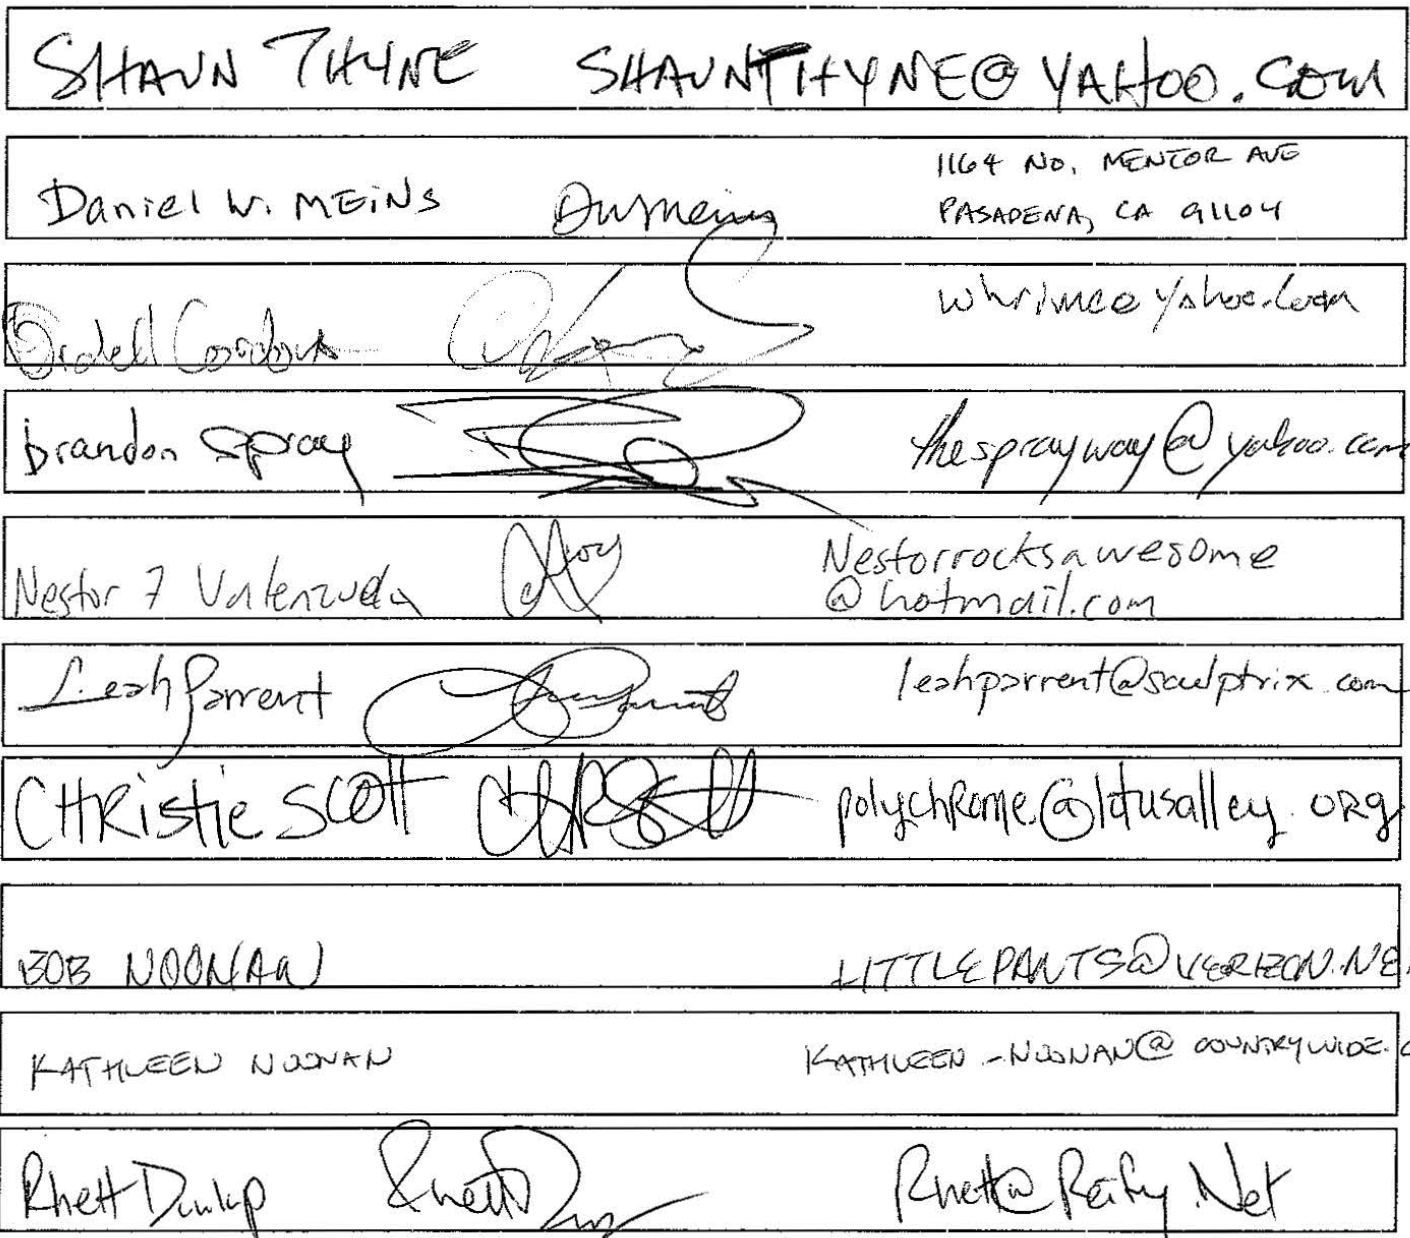 SHAUN THYNE SHAUNTHYNE@YAHOO.COM
Daniel W. MEINS DWMeins 1164 NO. MENTOR AVE
PASADENA, CA 91104
Cordova
Brandon Spray thesprayway@yahoo.com
Nestor 7 Valenzuela Nestorrocksawesome
@hotmail.com
Leah Parrent leahparrent@sculptrix.com
CHRistie SCOtt polychRome@lotusalley.ORg
BOB NOONAN LITTLEPANTS@VERIZON.NE
KATHLEEN NOONAN KATHLEEN-NOONAN@COUNTRYWIDE.C
Rhett Dunlap Rhett Rhett@Reify.Net